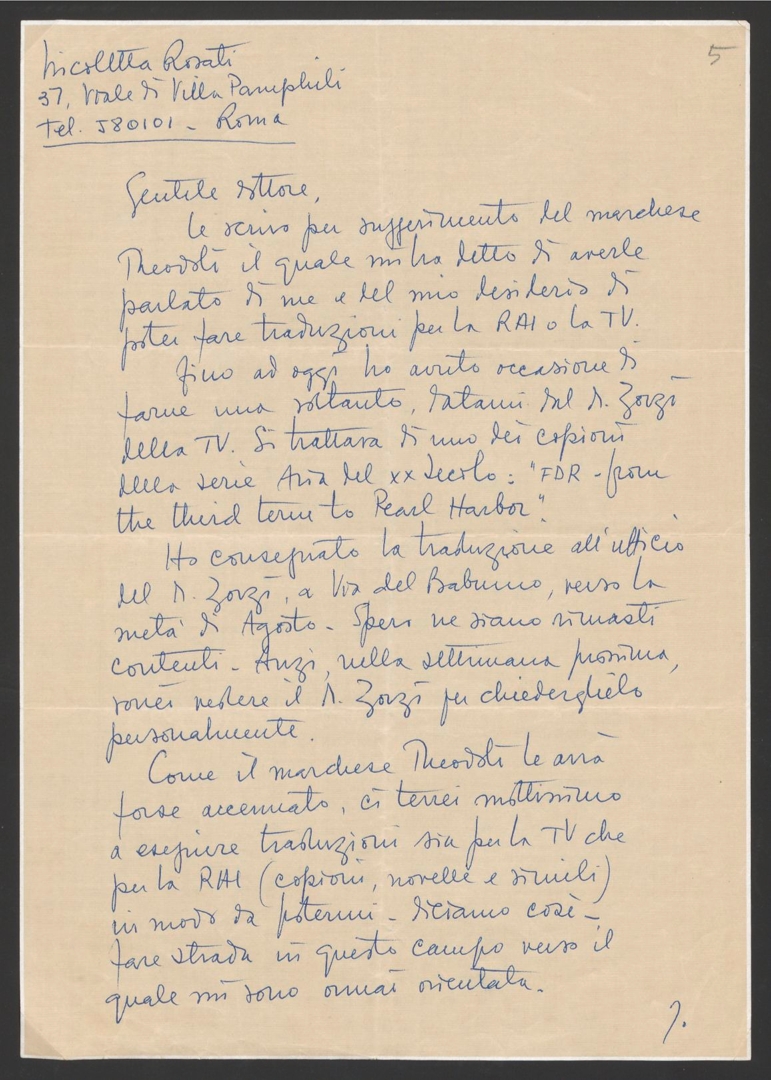 5
Nicoletta Rosati
37, Viale di Villa Pamphili
Tel. 580101 - Roma
Gentile dottore,
Le scrivo per suggerimento del marchese
Theodoli il quale mi ha detto di averle
parlato di me e del mio desiderio di
poter fare traduzioni per la RAI o la TV.
Fino ad oggi ho avuto occasione di
farne una soltanto, datami dal D. Zorzi
della TV. Si trattava di uno dei copioni
della serie Aria del XX Secolo: "FDR - from
the third term to Pearl Harbor".
Ho consegnato la traduzione all'ufficio
del D. Zorzi, a Via del Babuino, verso la
metà di Agosto - Spero ne siano rimasti
contenti - Anzi, nella settimana prossima,
vorrei vedere il D. Zorzi per chiederglielo
personalmente.
Come il marchese Theodoli le avrà
forse accennato, ci terrei moltissimo
a eseguire traduzioni sia per la TV che
per la RAI (copioni, novelle e simili)
in modo da potermi - diciamo così -
fare strada in questo campo verso il
quale mi sono ormai orientata.